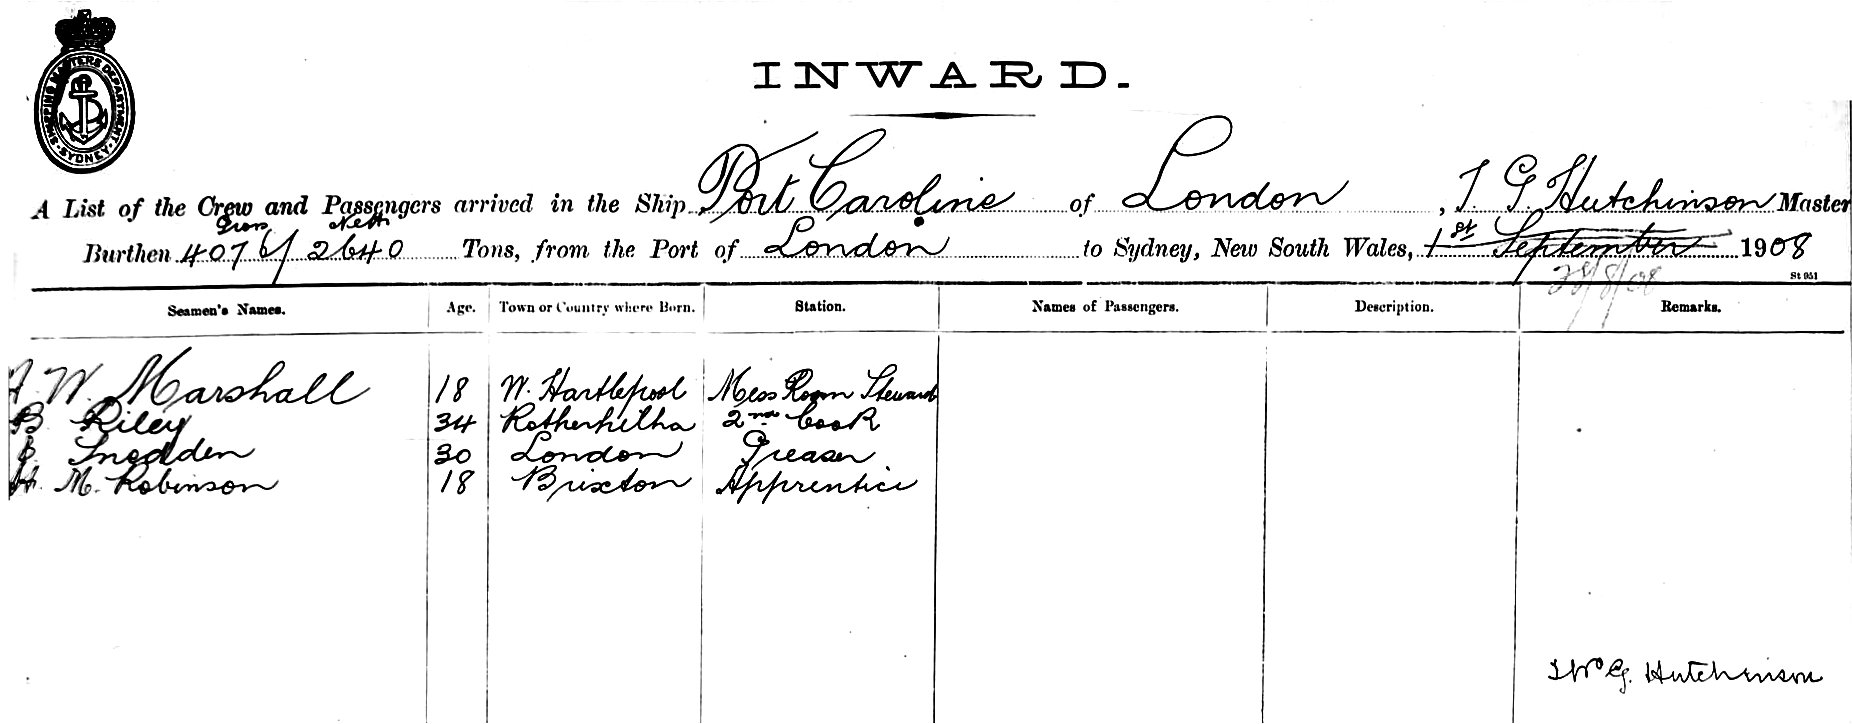 SHIPPING MASTERS DEPARTMENT
SYDNEY
INWARD.
A List of the Crew and Passengers arrived in the Ship Port Caroline of London, T. G. Hutchinson Master
Gross Nett
Burthen 4076/2640 Tons, from the Port of London to Sydney, New South Wales, 1st September 1908
28/8/08
St 951
Seamen's Names. Age. Town or Country where Born. Station. Names of Passengers. Description. Remarks.
A W. Marshall 18 W. Hartlepool Mess Room Steward
B Riley 34 Rotherhitha 2nd Cook
Snedden 30 London Greaser
H. M. Robinson 18 Brixton Apprentice
G. Hutchinson